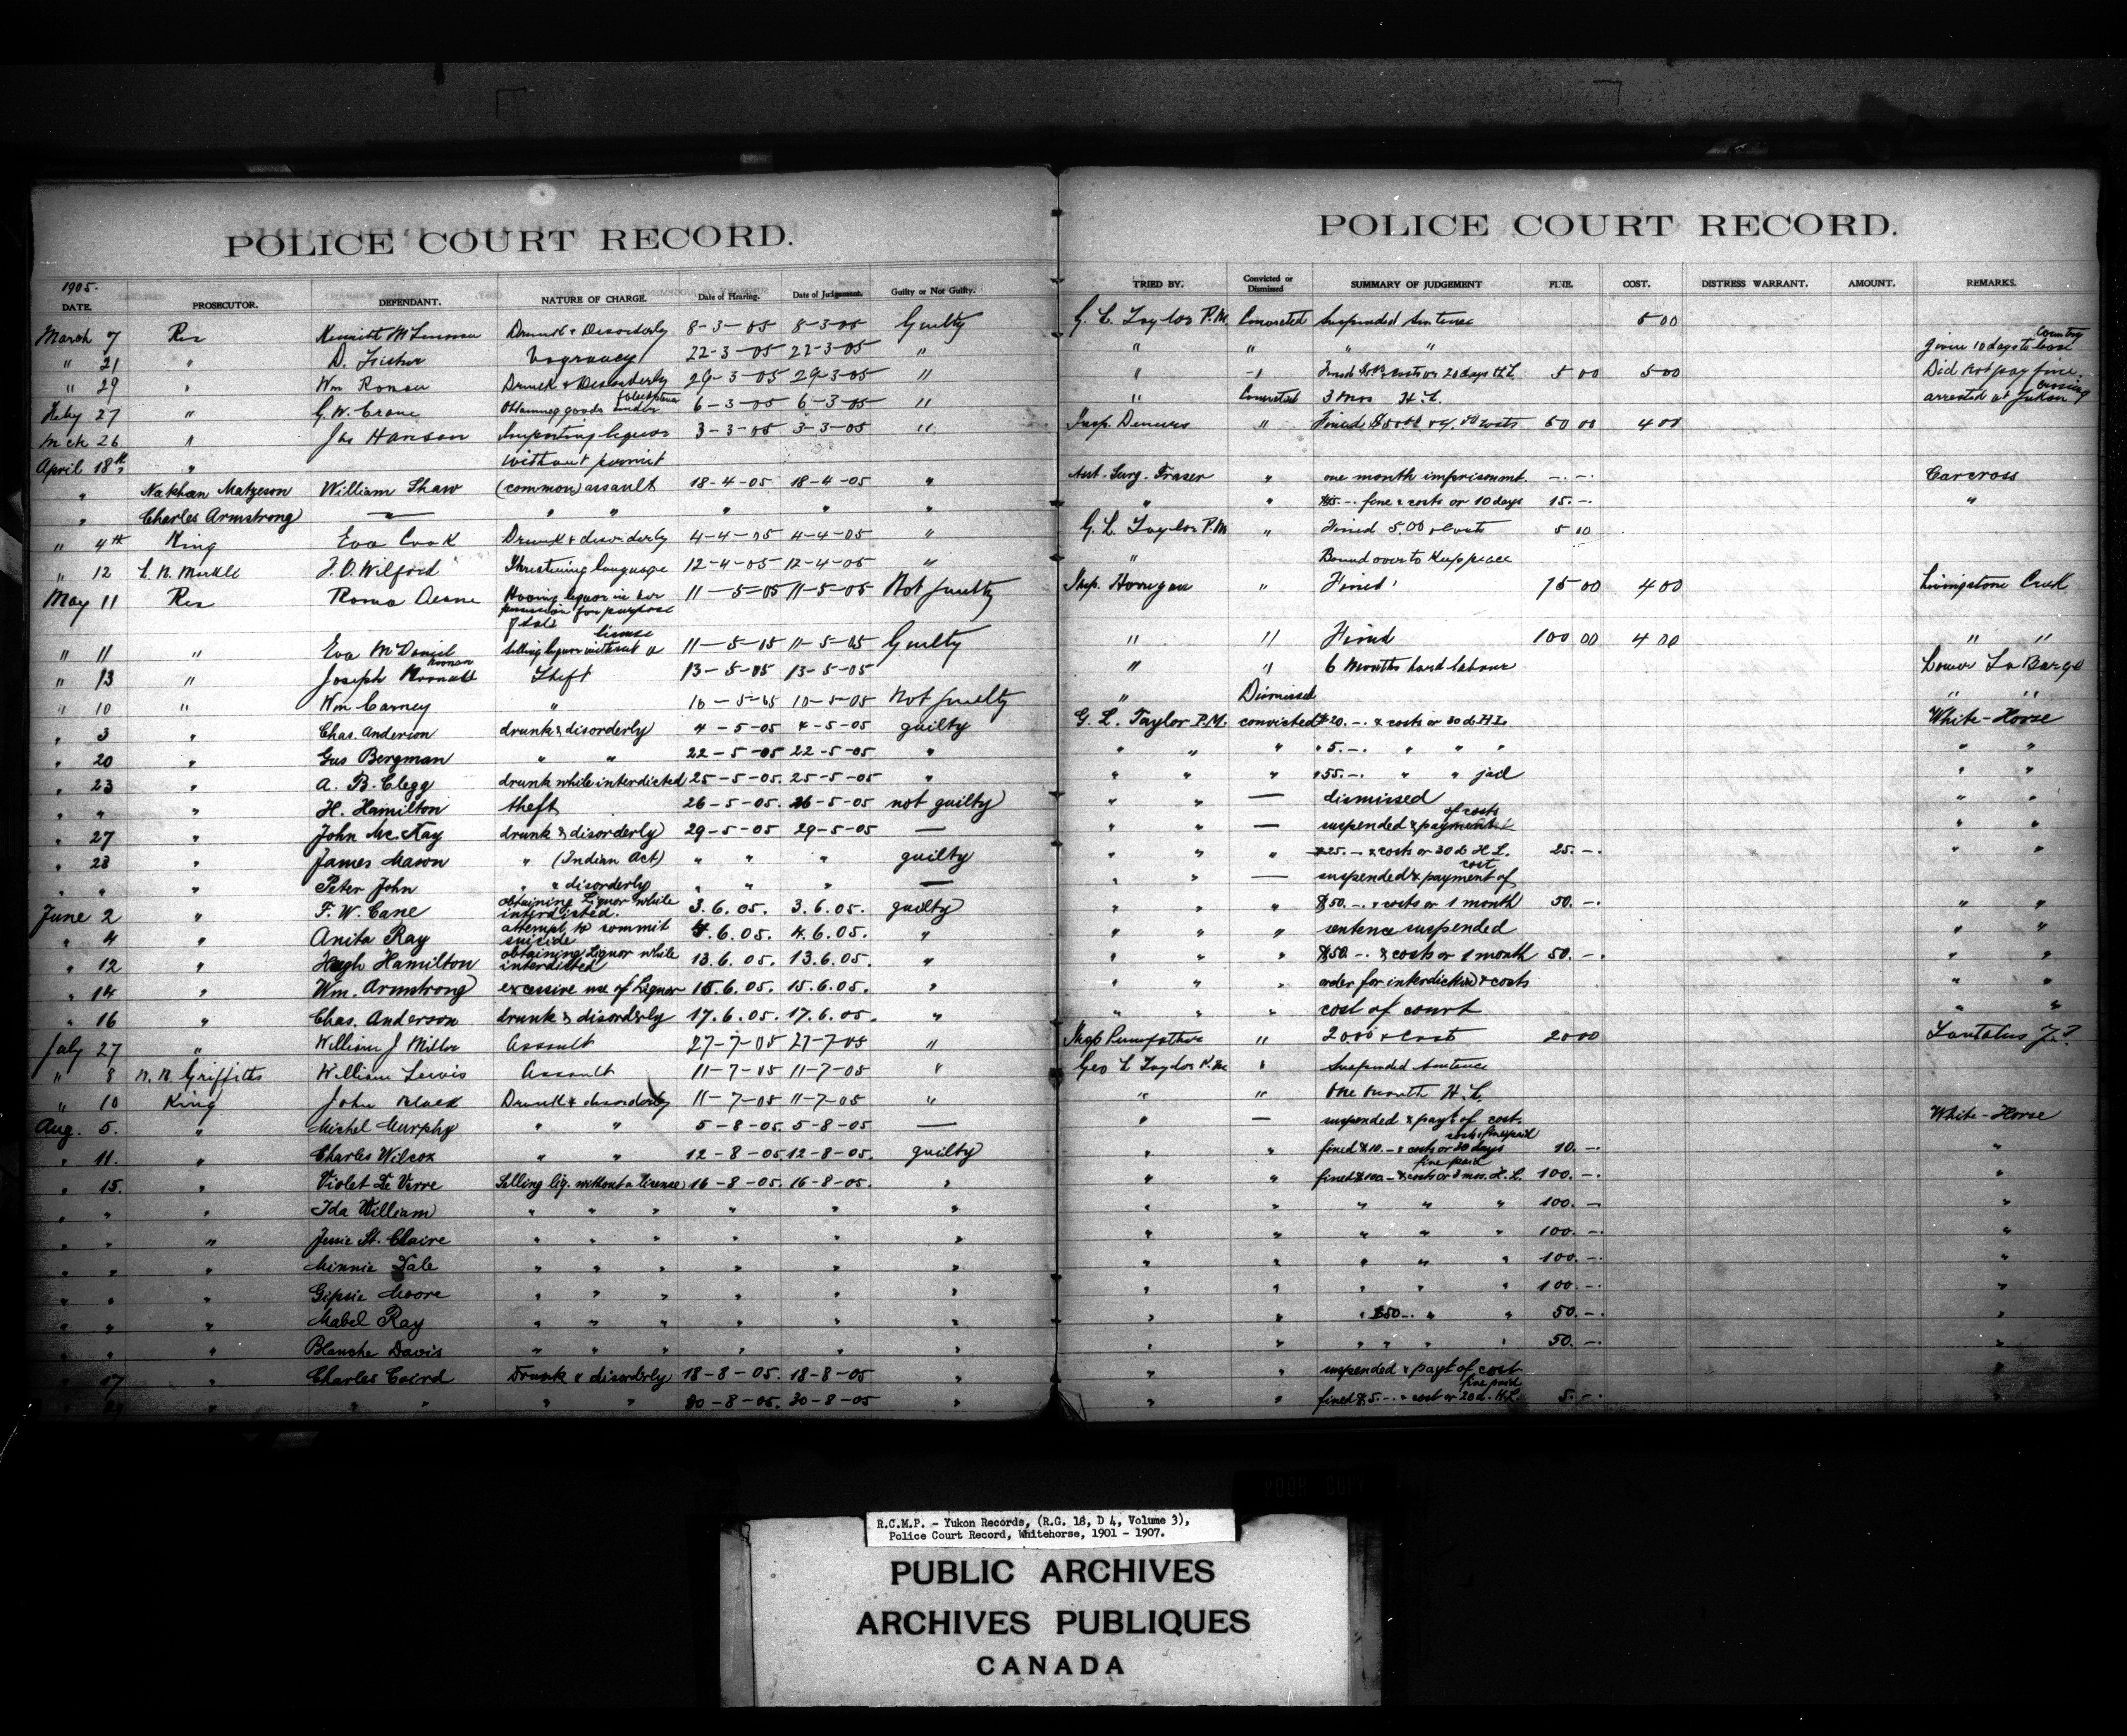 POLICE COURT RECORD.
POLICE COURT RECORD.
1905.
DATE. PROSECUTOR. DEFENDANT. NATURE OF CHARGE. Date of Hearing. Date of Judgement. Guilty or Not Guilty. TRIED BY. Convicted or Dismissed SUMMARY OF JUDGEMENT FINE. COST. DISTRESS WARRANT. AMOUNT. REMARKS.
March 7 Rex Drunk & Disorderly 8-3-05 8-3-05 Guilty G. L. Taylor P.M. Convicted Suspended Sentence 5 00
" 21 " D. Fisher Vagrancy 22-3-05 22-3-05 " " " " " given 10 days to leave Country
" 29 " Wm Roman Drunk & Disorderly 29-3-05 29-3-05 " " " costs or 20 days H.L. 5 00 5 00 Did not pay fine.
Feby 27 " G. W. Crane Obtaining goods under false pretence 6-3-05 6-3-05 " " Convicted 3 Mos H.L. arrested at Yukon Crossing
Mch 26 " Jas Hanson Importing liquor 3-3-05 3-3-05 " Insp. Demers " Fined $50.00 & 4.00 costs 50 00 4 00
April 18th " without permit
" Nathan Matheson William Shaw (common) assault 18-4-05 18-4-05 " Asst. Surg. Fraser " one month imprisonmt. -.-. Carcross
" Charles Armstrong — " " " " " " " $15.-. fine & costs or 10 days 15.-. "
" 4th King Eva Cook Drunk & disorderly 4-4-05 4-4-05 " G. L. Taylor P.M " Fined 5.00 & Costs 5 00
" 12 J. O. Wilford Threatening language 12-4-05 12-4-05 " " Bound over to Keep peace
May 11 Rex Roma Deane Having liquor in her possession for purpose of sale 11-5-05 11-5-05 Not guilty Insp. Horrigan " Fined 15 00 4 00 Livingstone Creek
" 11 " Eva McDaniel Selling liquor without a license 11-5-05 11-5-05 Guilty " " Fined 100 00 4 00 " "
" 13 " Joseph Theft 13-5-05 13-5-05 " " 6 Months hard labour Lower La Barge
" 10 " Wm Carney " 10-5-05 10-5-05 Not guilty " Dismissed " "
" 3 " Chas. Anderson drunk & disorderly 4-5-05 4-5-05 guilty G. L. Taylor P.M. convicted $20.-. & costs or 30 d. H.L. White-Horse
" 20 " Gus Bergman " " 22-5-05 22-5-05 " " " " " 5.-. " " " " "
" 23 " A. B. Clegg drunk while interdicted 25-5-05. 25-5-05 " " " " $55.-. " " jail " "
" " " H. Hamilton theft 26-5-05. 26-5-05 not guilty " " — dismissed " "
" 27 " John Mc. Kay drunk & disorderly 29-5-05 29-5-05 — " " — suspended & payment of costs " "
" 28 " James Mason " (Indian Act) " " " guilty " " " $25.- & costs or 30 d. H.L. 25.-. " "
" " " Peter John " & disorderly " " " — " " — suspended & payment of cost
June 2 " F. W. Cane obtaining Liquor while interdicted. 3.6.05. 3.6.05. guilty " " " $50.-. & costs or 1 month 50.-. " "
" 4 " Anita Ray attempt to commit suicide 4.6.05. 4.6.05. " " " " sentence suspended " "
" 12 " Hugh Hamilton obtaining Liquor while interdicted 13.6.05. 13.6.05. " " " " $50.-. & costs or 1 month 50.-. " "
" 14 " Wm. Armstrong excessive use of Liquor 15.6.05. 15.6.05. " " " " order for interdiction & costs " "
" 16 " Chas. Anderson drunk & disorderly 17.6.05. 17.6.05. " " " " cost of court " "
July 27 " William J Miller Assault 27-7-05 27-7-05 " " 20 00 & Cost 20 00
" 8 N. N. Griffiths William Lewis Assault 11-7-05 11-7-05 " Geo L Taylor P.M. " Suspended Sentence
" 10 King John Black Drunk & disorderly 11-7-05 11-7-05 " " " One month H.L.
Aug. 5. " Michel Murphy " " 5-8-05. 5-8-05 — " — suspended & payt of cost. White-Horse
" 11. " Charles Wilcox " " 12-8-05 12-8-05. guilty " " fined $10.- & costs or 30 days costs & fine paid 10.-. "
" 15. " Violet De Verre Selling liq. without a license 16-8-05. 16-8-05. " " " fined $100.- & costs or 3 mos. H.L. fine paid 100.-. "
" " " Ida William " " " " " " " " " " " 100.- "
" " " Jessie St. Claire " " " " " " " " " " " 100.-. "
" " " Minnie Dale " " " " " " " " " " " 100.-. "
" " " Gipsie Moore " " " " " " " " " " " 100.-. "
" " " Mabel Ray " " " " " " " " " $50-. " " 50.-. "
" " " Blanche Davis " " " " " " " " " " " " 50.-. "
" 17 " Charles Caird Drunk & disorderly 18-8-05. 18-8-05 " " " suspended & payt of cost "
" " " " " " 30-8-05. 30-8-05 " " " fined $5.-. & cost or 20 d. H.L. fine paid 5.-. "
R.C.M.P. - Yukon Records, (R.G. 18, D 4, Volume 3),
Police Court Record, Whitehorse, 1901 - 1907.
PUBLIC ARCHIVES
ARCHIVES PUBLIQUES
CANADA